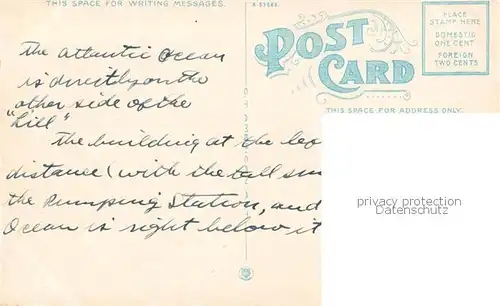 THIS SPACE FOR WRITING MESSAGES.
A-57585
the Atlantic Ocean
is directly on the
other side of the
"hill"
The building at the
distance (with the tall
the Pumping Station, and
Ocean is right below it
POST CARD
PLACE
STAMP HERE
DOMESTIC
ONE CENT
FOREIGN
TWO CENTS
THIS SPACE FOR ADDRESS ONLY.
privacy protection
Datenschutz